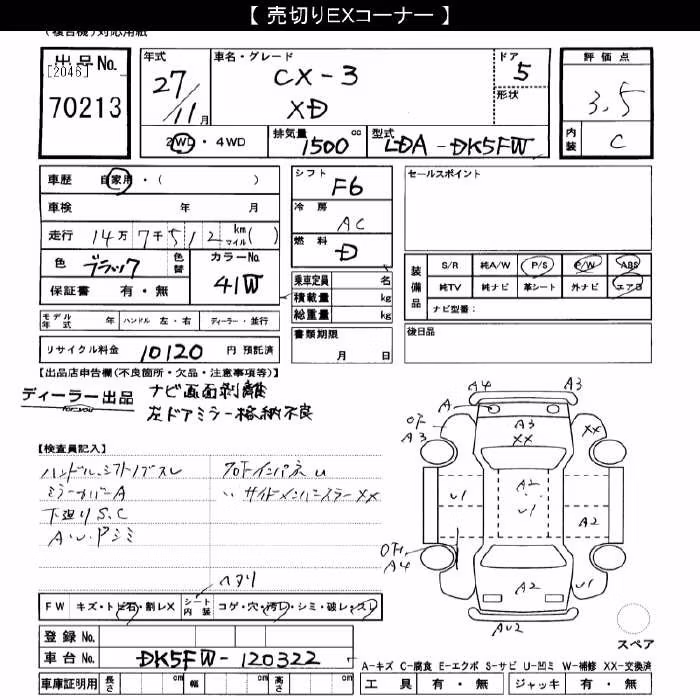 【 売切りEXコーナー 】
(複合機)対応用紙
出品No.
[2046]
70213
年式
27/11月
車名・グレード
CX-3
XD
ドア
5
形状
評価点
3.5
内装
C
2WD・4WD
排気量
1500cc
型式
LDA-DK5FW
車歴 自家用・( )
車検 年 月
走行 14万7千512 km マイル( )
色 ブラック 色替
カラーNo.
41W
保証書 有・無
シフト
F6
冷房
AC
燃料
D
乗車定員 名
積載量 kg
総重量 kg
セールスポイント
装備品
S/R 純A/W P/S P/W ABS
純TV 純ナビ 革シート 外ナビ エアB
ナビ型番:
モデル年式 年 ハンドル 左・右 ディーラー・並行
リサイクル料金 10120 円 預託済
書類期限
月 日
後日品
【出品店申告欄(不良箇所・欠品・注意事項等)】
ディーラー出品
for you
ナビ画面剥離
左ドアミラー格納不良
【検査員記入】
ハンドル、シフトノブスレ
ミラーカバーA
下廻りS、C
A・U・Pシミ
クロトインパネU
〃サイドメンバースラーXX
ヘタリ
FW キズ・トビ石・割レX シート内装 コゲ・穴・汚レ・シミ・破レ・スレ
登録No.
車台No. DK5FW-120322
車庫証明用 長さ cm 幅 cm 高さ cm
A4
A3
A
OF
A3
A3
XX
XX
A2
U1
U1
A2
OF
A4
A2
U1
AU2
スペア
A-キズ C-腐食 E-エクボ S-サビ U-凹ミ W-補修 XX-交換済
工具 有・無 ジャッキ 有・無